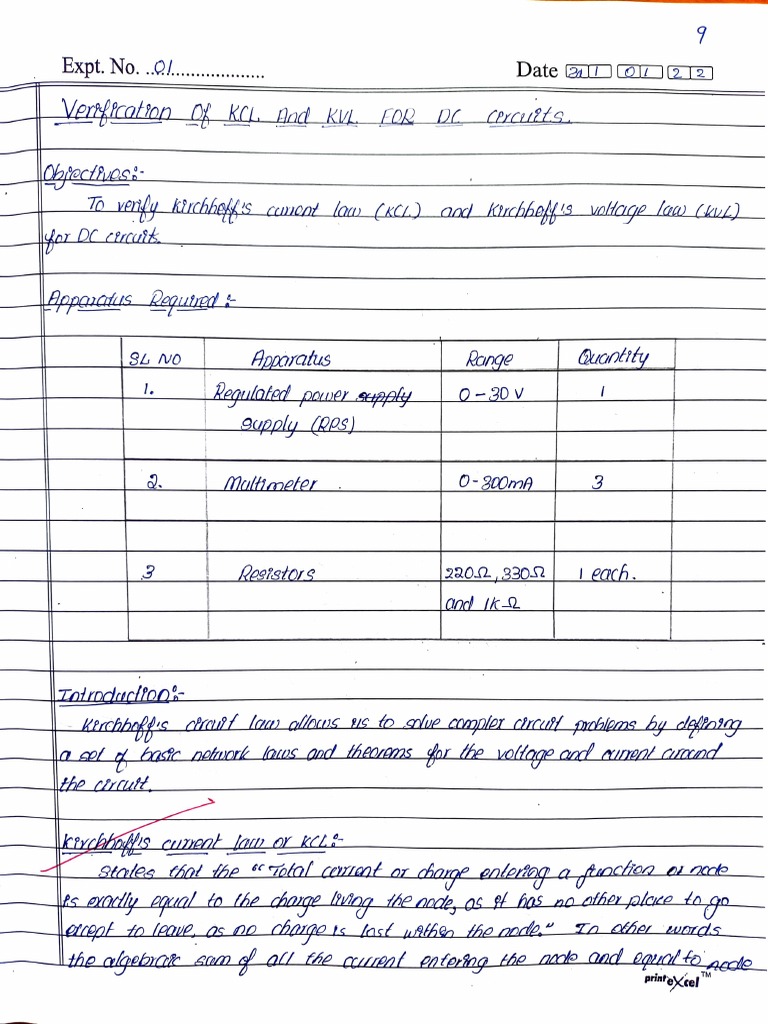 9
Expt. No. 01
Date 31 01 22
Verification Of KCL And KVL FOR DC circuits.
Objectives:-
To verify Kirchhoff's current law (KCL) and Kirchhoff's voltage law (KVL)
for DC circuit.
Apparatus Required:-
SL NO Apparatus Range Quantity
1. Regulated power supply 0-30 V 1
supply (RPS)
2. Multimeter. 0-300mA 3
3 Resistors 220Ω, 330Ω 1 each.
and 1KΩ
Introduction:-
Kirchhoff's circuit law allows us to solve complex circuit problems by defining
a set of basic network laws and theorems for the voltage and current around
the circuit.
Kirchhoff's current law or KCL:-
States that the "Total current or charge entering a function or node
is exactly equal to the charge living the node, as it has no other place to go
except to leave, as no charge is lost within the node." In other words
the algebraic sum of all the current entering the node and equal to node
print eXcel™